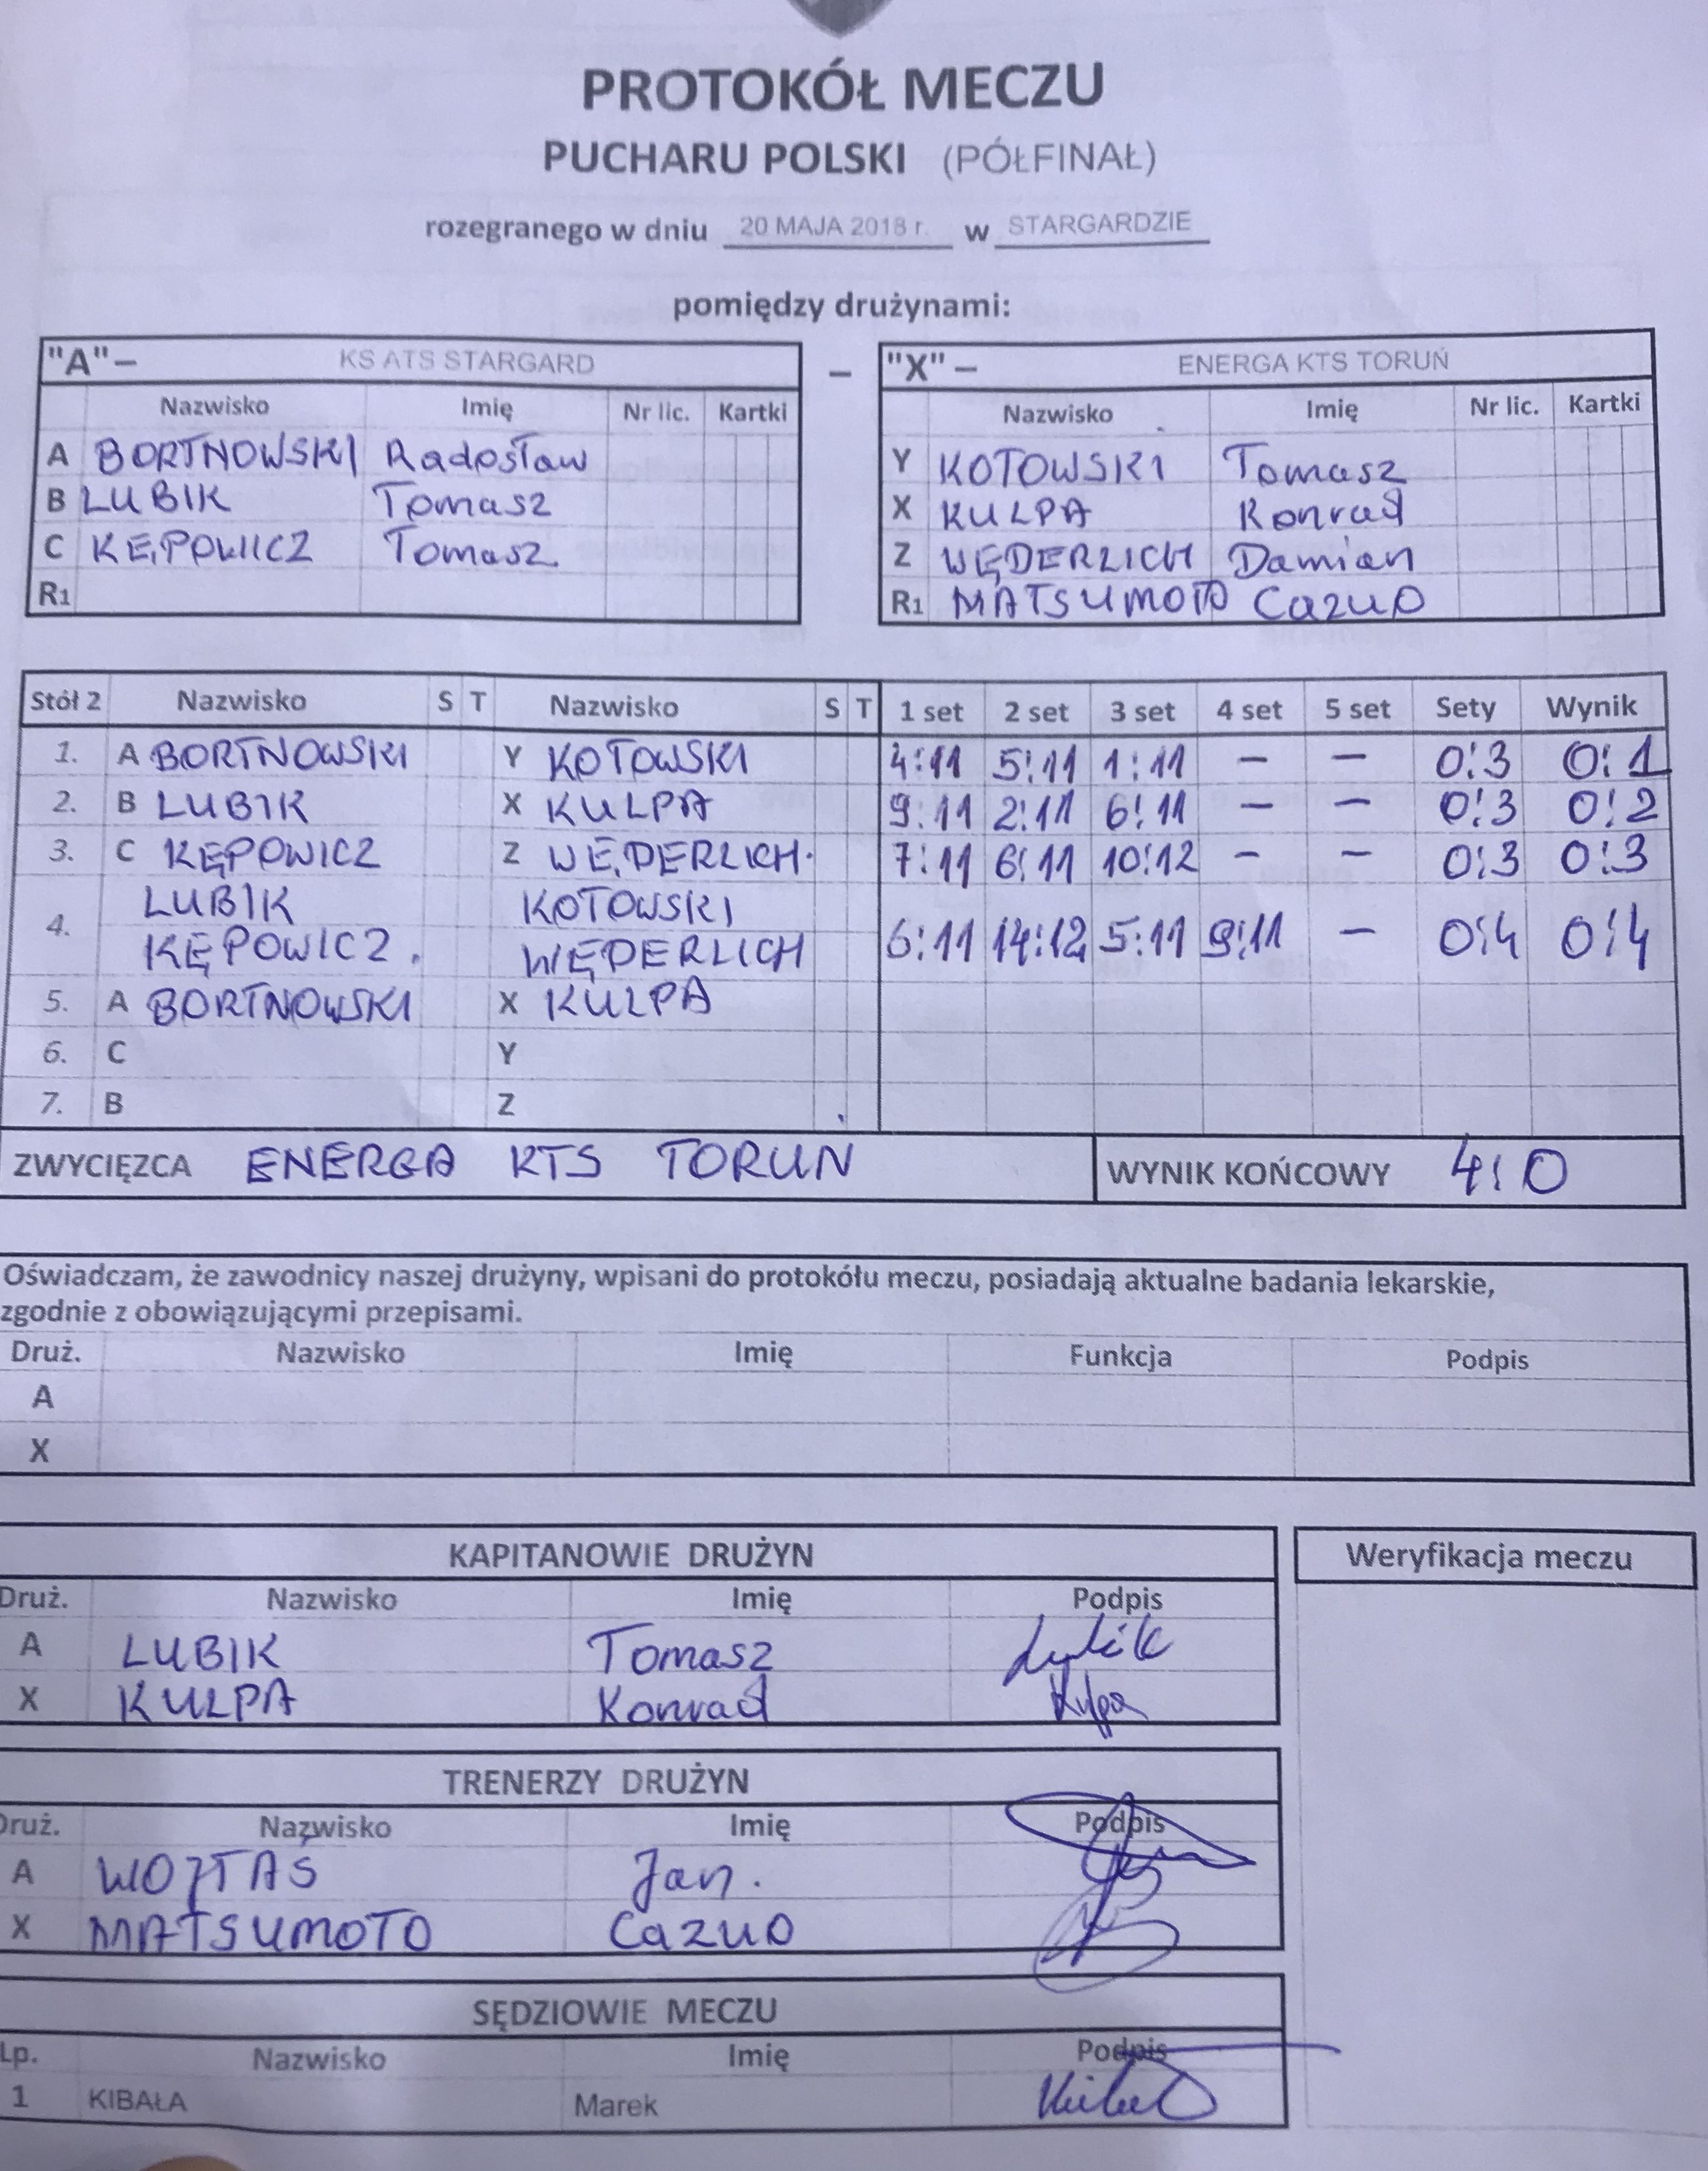 PROTOKÓŁ MECZU
PUCHARU POLSKI (PÓŁFINAŁ)
rozegranego w dniu 20 MAJA 2018 r. w STARGARDZIE
pomiędzy drużynami:
"A"– KS ATS STARGARD – "X"– ENERGA KTS TORUŃ
Nazwisko Imię Nr lic. Kartki Nazwisko Imię Nr lic. Kartki
A BORTNOWSKI Radosław Y KOTOWSKI Tomasz
B LUBIK Tomasz X KULPA Konrad
C KĘPOWICZ Tomasz Z WĘDERLICH Damian
R1 R1 MATSUMOTO Cazuo
Stół 2 Nazwisko S T Nazwisko S T 1 set 2 set 3 set 4 set 5 set Sety Wynik
1. A BORTNOWSKI Y KOTOWSKI 4:11 5:11 1:11 – – 0:3 0:1
2. B LUBIK X KULPA 9:11 2:11 6:11 – – 0:3 0:2
3. C KĘPOWICZ Z WĘDERLICH 7:11 6:11 10:12 – – 0:3 0:3
LUBIK KOTOWSKI
4. 6:11 14:12 5:11 9:11 – 0:4 0:4
KĘPOWICZ. WĘDERLICH
5. A BORTNOWSKI X KULPA
6. C Y
7. B Z
ZWYCIĘZCA ENERGA KTS TORUN WYNIK KOŃCOWY 4:0
Oświadczam, że zawodnicy naszej drużyny, wpisani do protokółu meczu, posiadają aktualne badania lekarskie,
zgodnie z obowiązującymi przepisami.
Druż. Nazwisko Imię Funkcja Podpis
A
X
KAPITANOWIE DRUŻYN Weryfikacja meczu
Druż. Nazwisko Imię Podpis
A LUBIK Tomasz Lubik
X KULPA Konrad Kulpa
TRENERZY DRUŻYN
Druż. Nazwisko Imię Podpis
A WOJTAŚ Jan.
X MATSUMOTO Cazuo
SĘDZIOWIE MECZU
Lp. Nazwisko Imię Podpis
1 KIBAŁA Marek